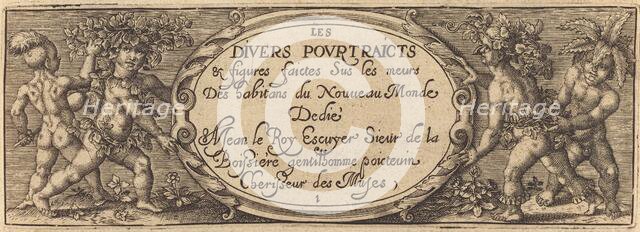 LES
DIVERS POVRTRAICTS
& figures faictes Sus les meurs
Des habitans du Nouueau Monde
Dedié
A Jean le Roy Escuyer Sieur de la
Boissiere gentilhomme poicteuin
Cherisseur des Muses
1
Heritage
Heritage